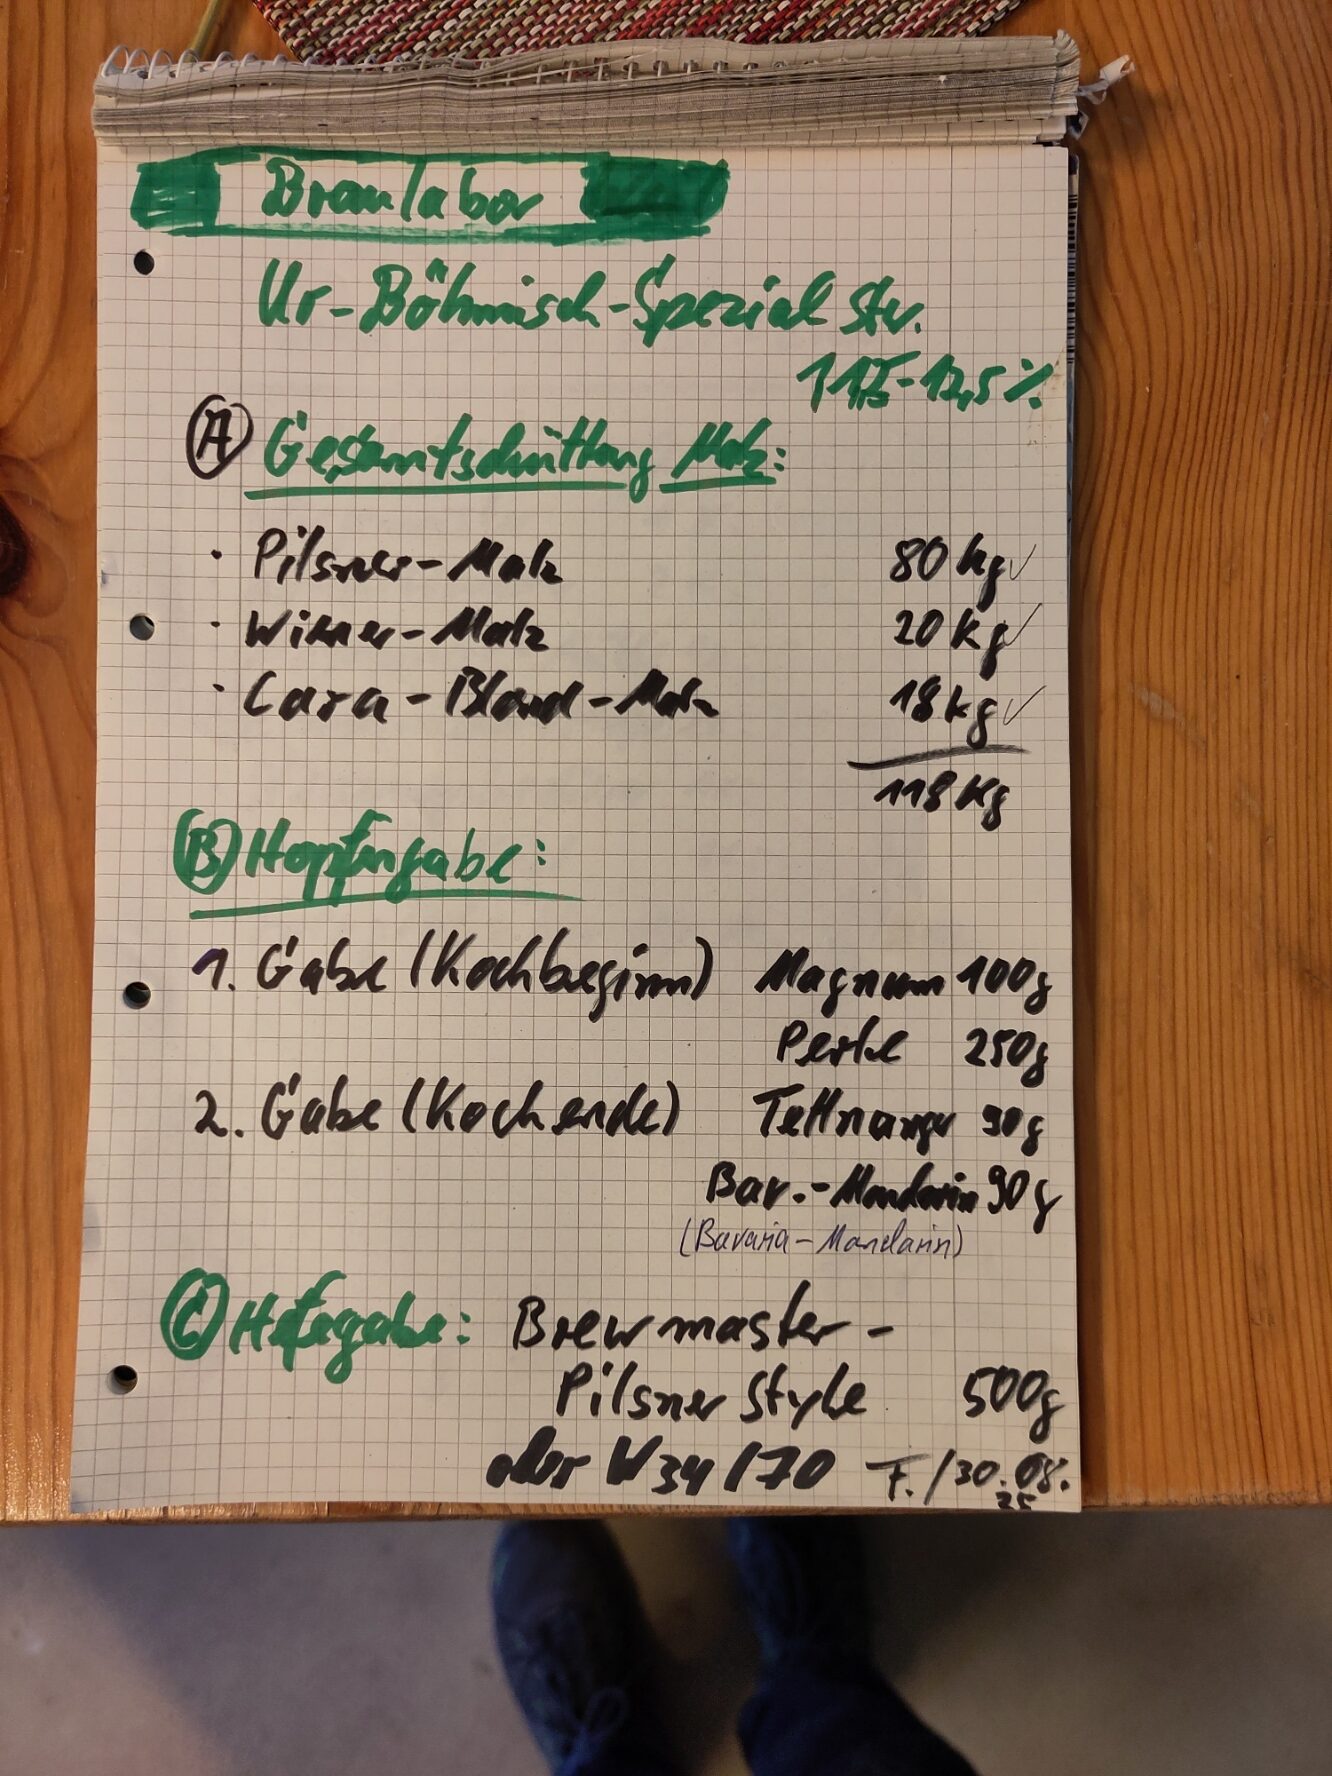 Braulabor
Ur-Böhmisch-Spezial Stw.
11,5-12,5%
A Gesamtschüttung Malz:
· Pilsner-Malz 80 kg ✓
· Wiener-Malz 20 kg ✓
· Cara-Blond-Malz 18 kg ✓
118 Kg
B Hopfengabe:
1. Gabe (Kochbeginn) Magnum 100g
Perle 250g
2. Gabe (Kochende) Tettnanger 90g
Bav.-Mandarin 90g
(Bavaria-Mandarin)
C Hefegabe: Brewmaster-
Pilsner Style 500g
oder W34/70 F./30.08.
25